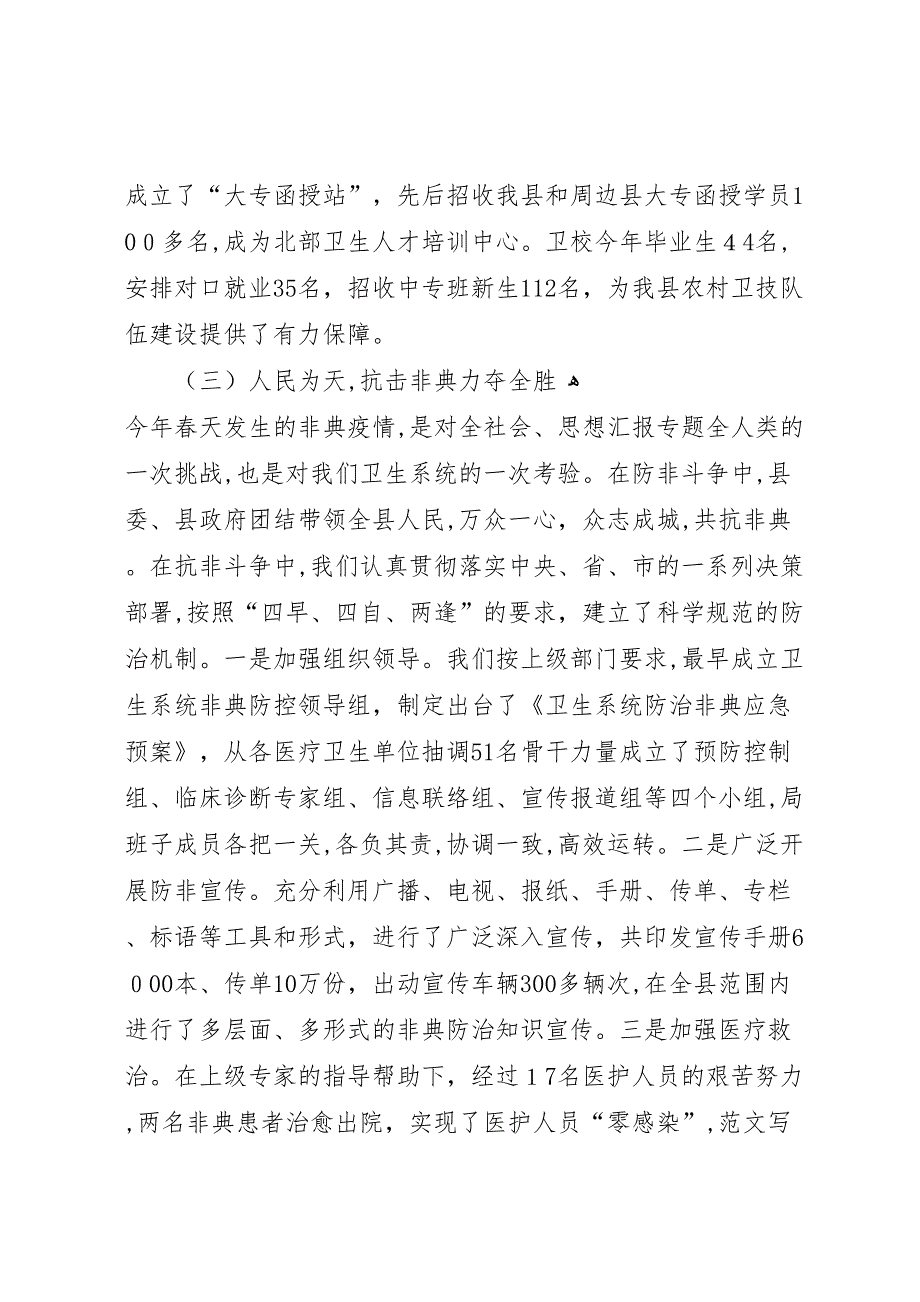 成立了“大专函授站”，先后招收我县和周边县大专函授学员1
00多名,成为北部卫生人才培训中心。卫校今年毕业生44名,
安排对口就业35名，招收中专班新生112名，为我县农村卫技队
伍建设提供了有力保障。
（三）人民为天,抗击非典力夺全胜ﻫ
今年春天发生的非典疫情,是对全社会、思想汇报专题全人类的
一次挑战,也是对我们卫生系统的一次考验。在防非斗争中,县
委、县政府团结带领全县人民,万众一心，众志成城,共抗非典
。在抗非斗争中,我们认真贯彻落实中央、省、市的一系列决策
部署,按照“四早、四自、两逢”的要求，建立了科学规范的防
治机制。一是加强组织领导。我们按上级部门要求,最早成立卫
生系统非典防控领导组，制定出台了《卫生系统防治非典应急
预案》，从各医疗卫生单位抽调51名骨干力量成立了预防控制
组、临床诊断专家组、信息联络组、宣传报道组等四个小组,局
班子成员各把一关,各负其责,协调一致,高效运转。二是广泛开
展防非宣传。充分利用广播、电视、报纸、手册、传单、专栏
、标语等工具和形式，进行了广泛深入宣传，共印发宣传手册6
000本、传单10万份，出动宣传车辆300多辆次,在全县范围内
进行了多层面、多形式的非典防治知识宣传。三是加强医疗救
治。在上级专家的指导帮助下，经过17名医护人员的艰苦努力
,两名非典患者治愈出院，实现了医护人员“零感染”,范文写